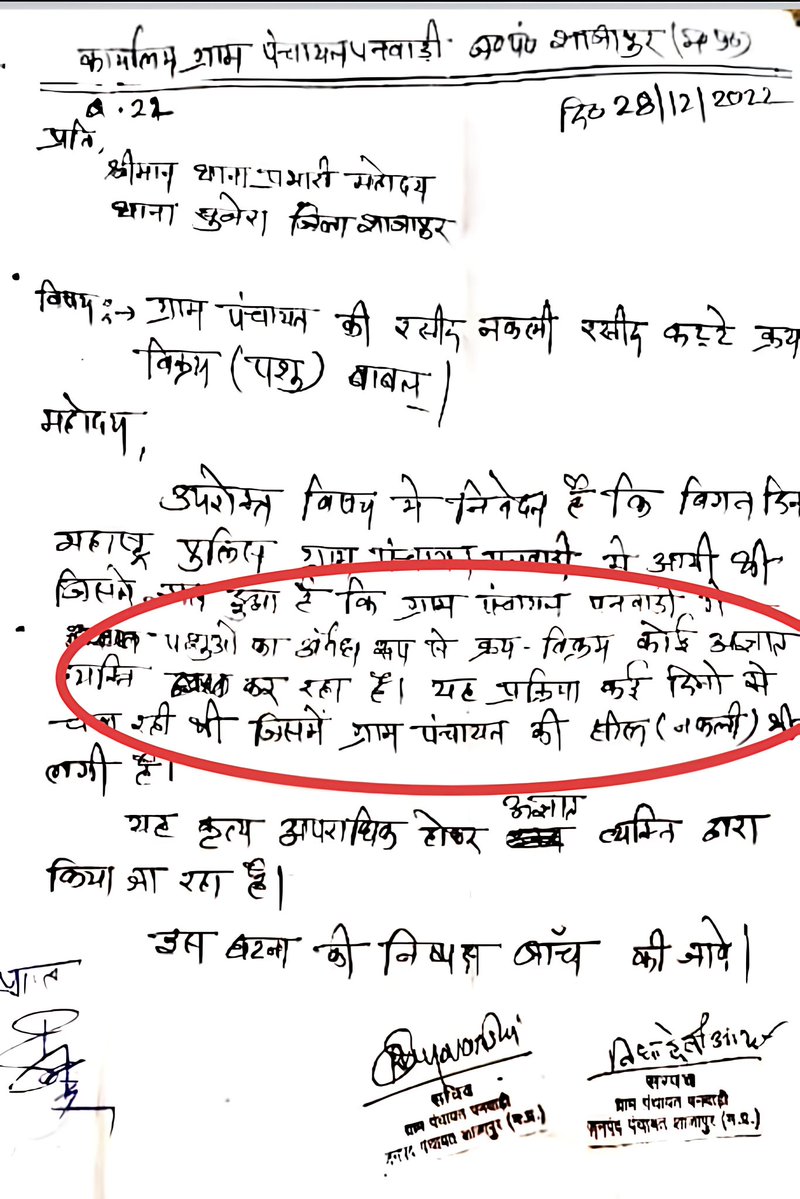 कार्यालय ग्राम पंचायत पनवाड़ी ज०पं० शाजापुर (म०प्र०)
क्र. 22
दि० 28/12/2022
प्रति,
श्रीमान थाना प्रभारी महोदय
थाना सुनेरा जिला शाजापुर
विषय :→ ग्राम पंचायत की रसीद नकली रसीद कट्टे क्रय
विक्रय (पशु) बाबत्।
महोदय,
उपरोक्त विषय मे निवेदन है कि विगत दिन
महाराष्ट्र पुलिस ग्राम पंचायत पनवाड़ी मे आयी थी
जिससे ज्ञात हुआ है कि ग्राम पंचायत पनवाड़ी मे
पशुओ का अवैध रूप से क्रय-विक्रय कोई अज्ञात
व्यक्ति कर रहा है। यह प्रक्रिया कई दिनो से
चल रही थी जिसमें ग्राम पंचायत की सील (नकली) भी
लगी है।
यह कृत्य अपराधिक होकर अज्ञात व्यक्ति द्वारा
किया जा रहा है।
इस घटना की निष्पक्ष जाँच की जावे।
प्राप्त
सचिव
ग्राम पंचायत पनवाड़ी
जनपद पंचायत शाजापुर (म.प्र.)
सरपंच
ग्राम पंचायत पनवाड़ी
जनपद पंचायत शाजापुर (म.प्र.)